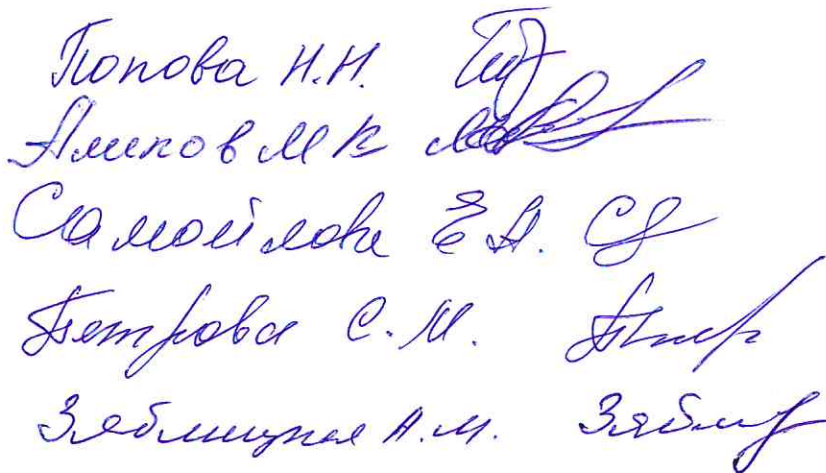 Попова Н.Н.
Аликов М К
Самойлова Е А.
Петрова С.М.
Зяблицкая А.М.